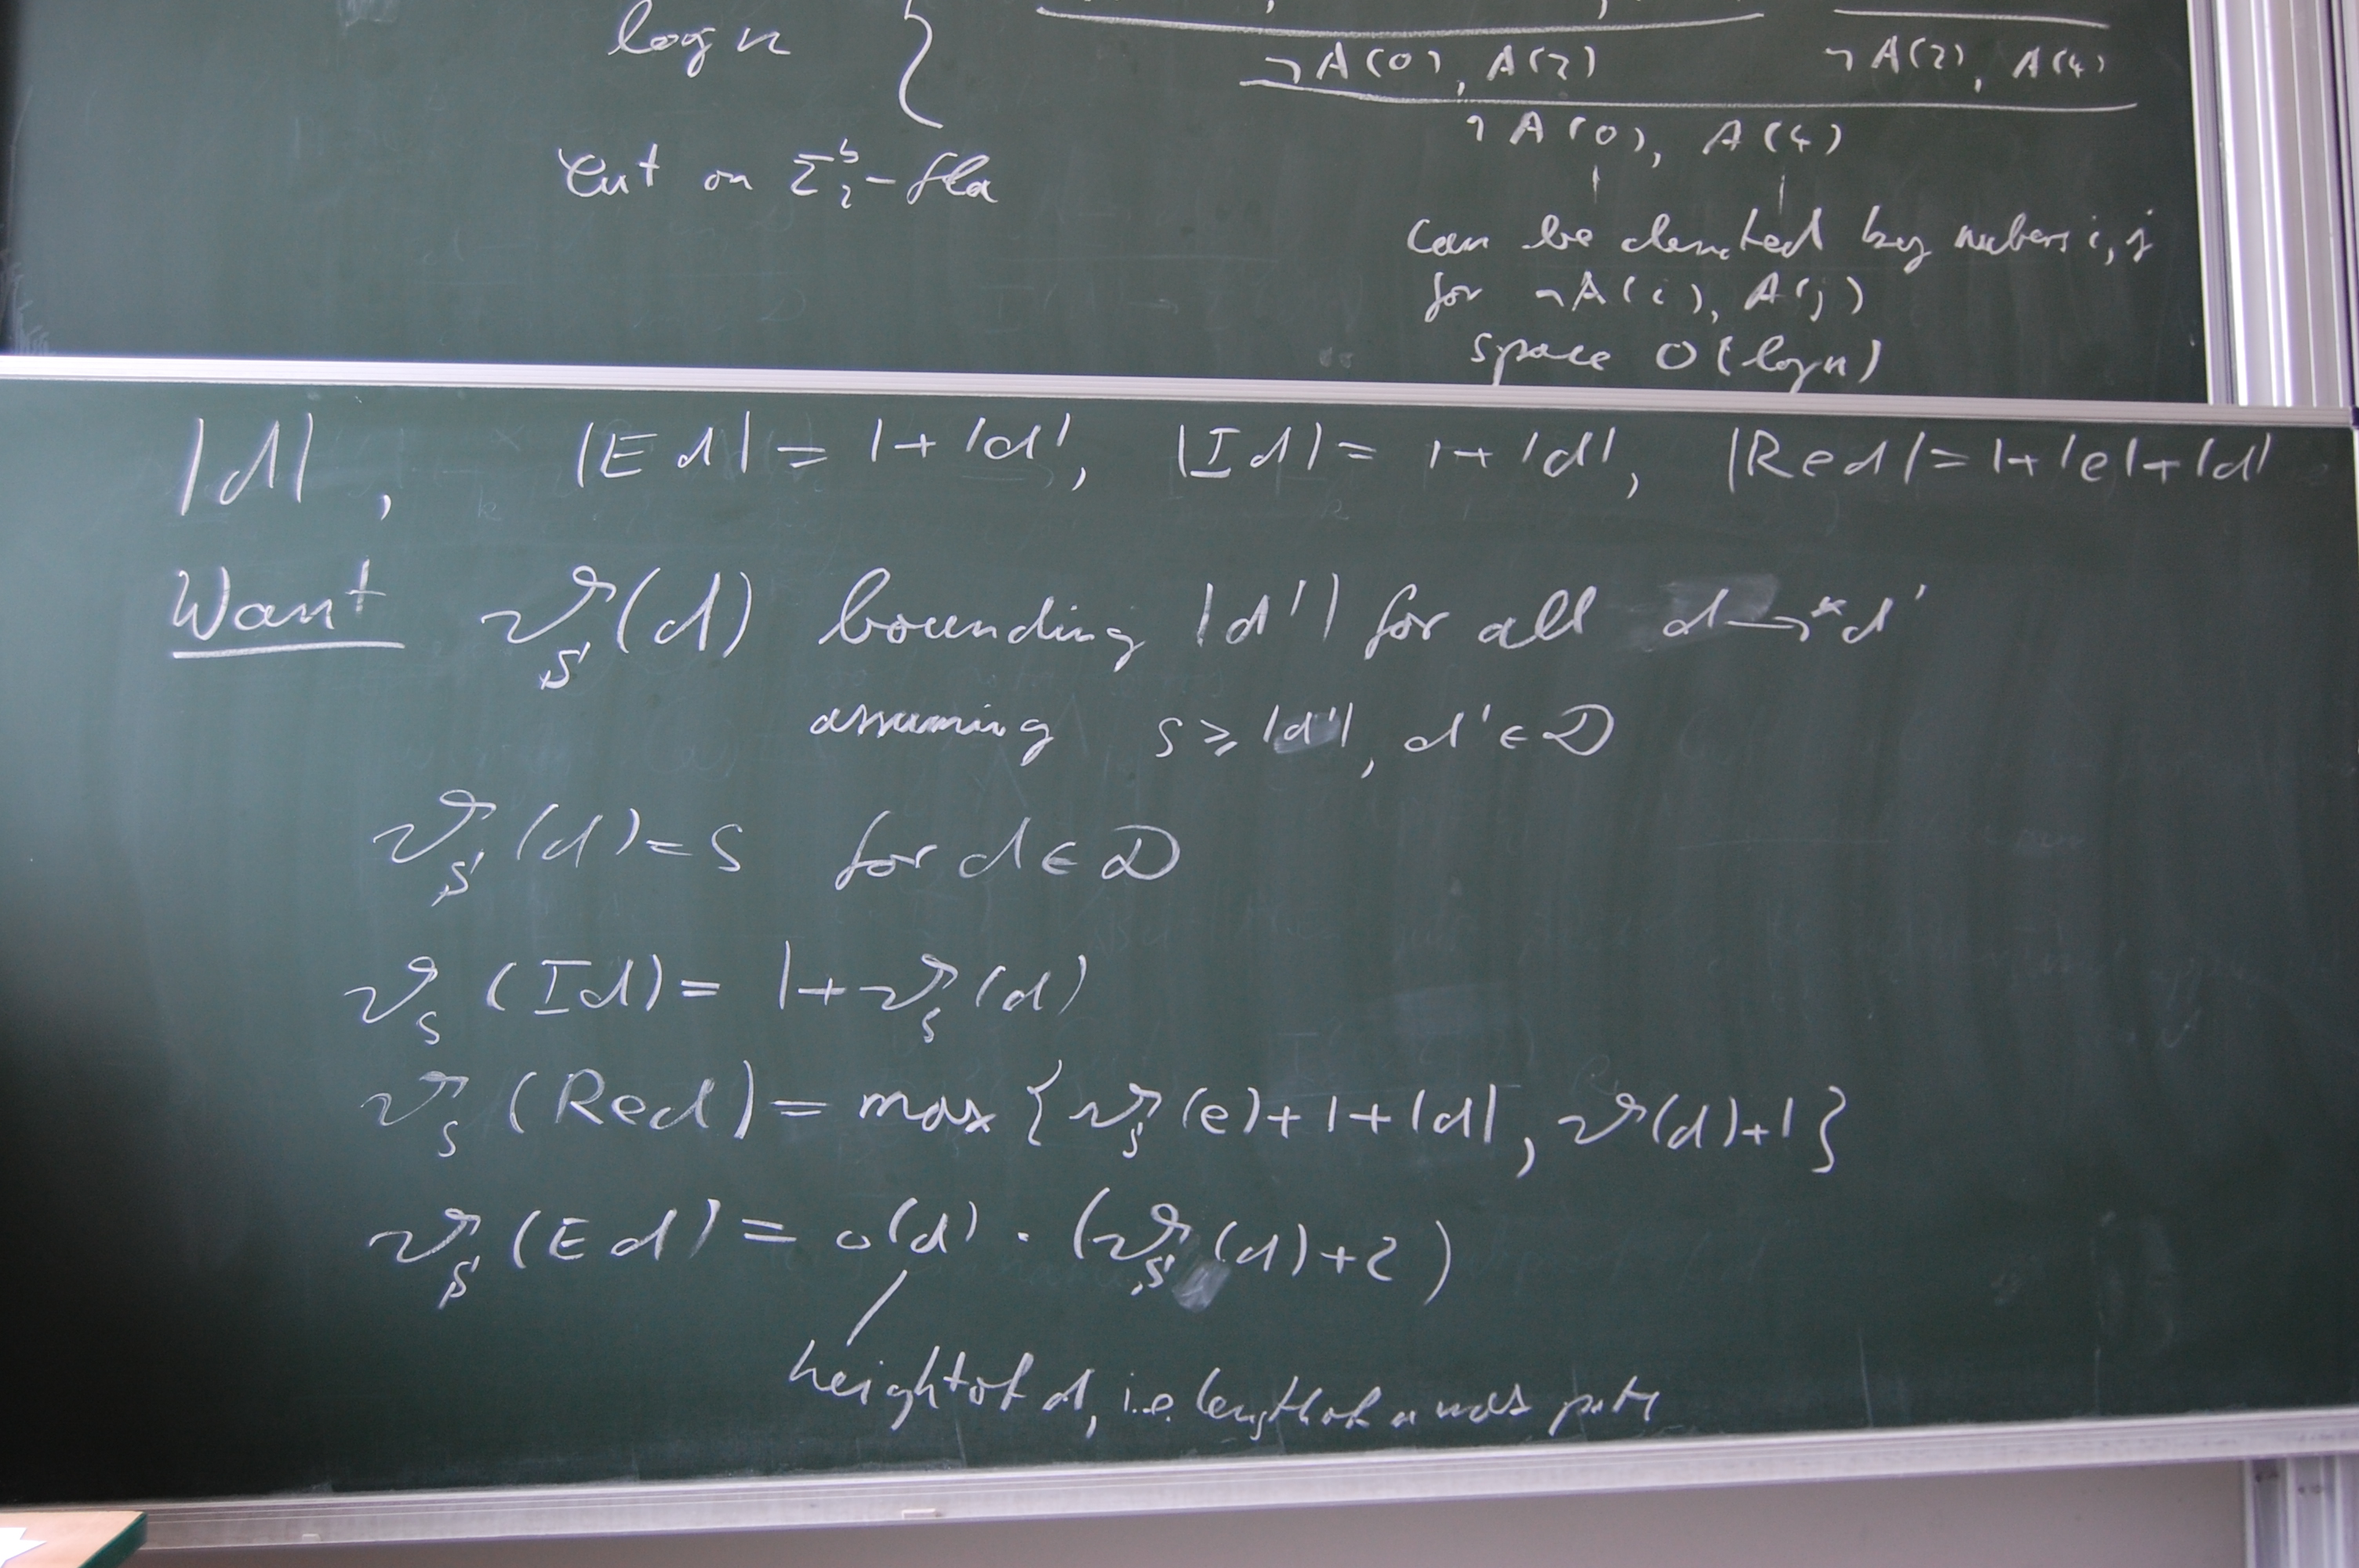 log n { ¬A(0), A(2) ¬A(2), A(4)
¬A(0), A(4)
Cut on Σ^b_2-fla
can be denoted by numbers i, j
for ¬A(i), A(j)
space O(log n)
|d|, |Ed| = 1+|d|, |Id| = 1+|d|, |Red| = 1+|e|+|d|
Want ϑ_s(d) bounding |d'| for all d →* d'
assuming s ≥ |d'|, d' ∈ D
ϑ_s(d) = s for d ∈ D
ϑ_s(Id) = 1+ϑ_s(d)
ϑ_s(Red) = max{ϑ_s(e)+1+|d|, ϑ(d)+1}
ϑ_s(Ed) = o(d) · (ϑ_s(d)+2)
height of d, i.e. length of a max path